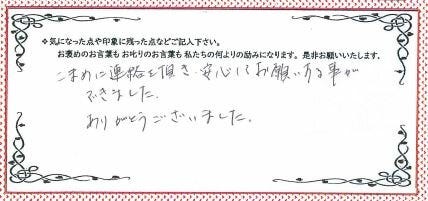 ❖気になった点や印象に残った点などご記入下さい。
お褒めのお言葉もお叱りのお言葉も私たちの何よりの励みになります。是非お願いいたします。
こまめに連絡を頂き、安心してお願いする事が
できました。
ありがとうございました。